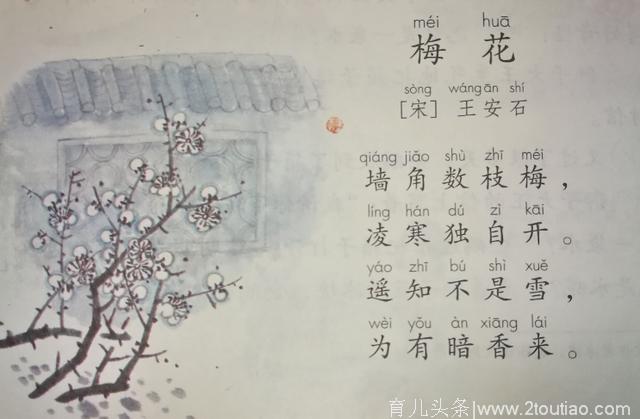 méi huā
梅花
sòng wáng ān shí
[宋] 王安石
qiáng jiǎo shù zhī méi
墙角数枝梅，
líng hán dú zì kāi
凌寒独自开。
yáo zhī bú shì xuě
遥知不是雪，
wèi yǒu àn xiāng lái
为有暗香来。
育儿头条/www.2toutiao.com